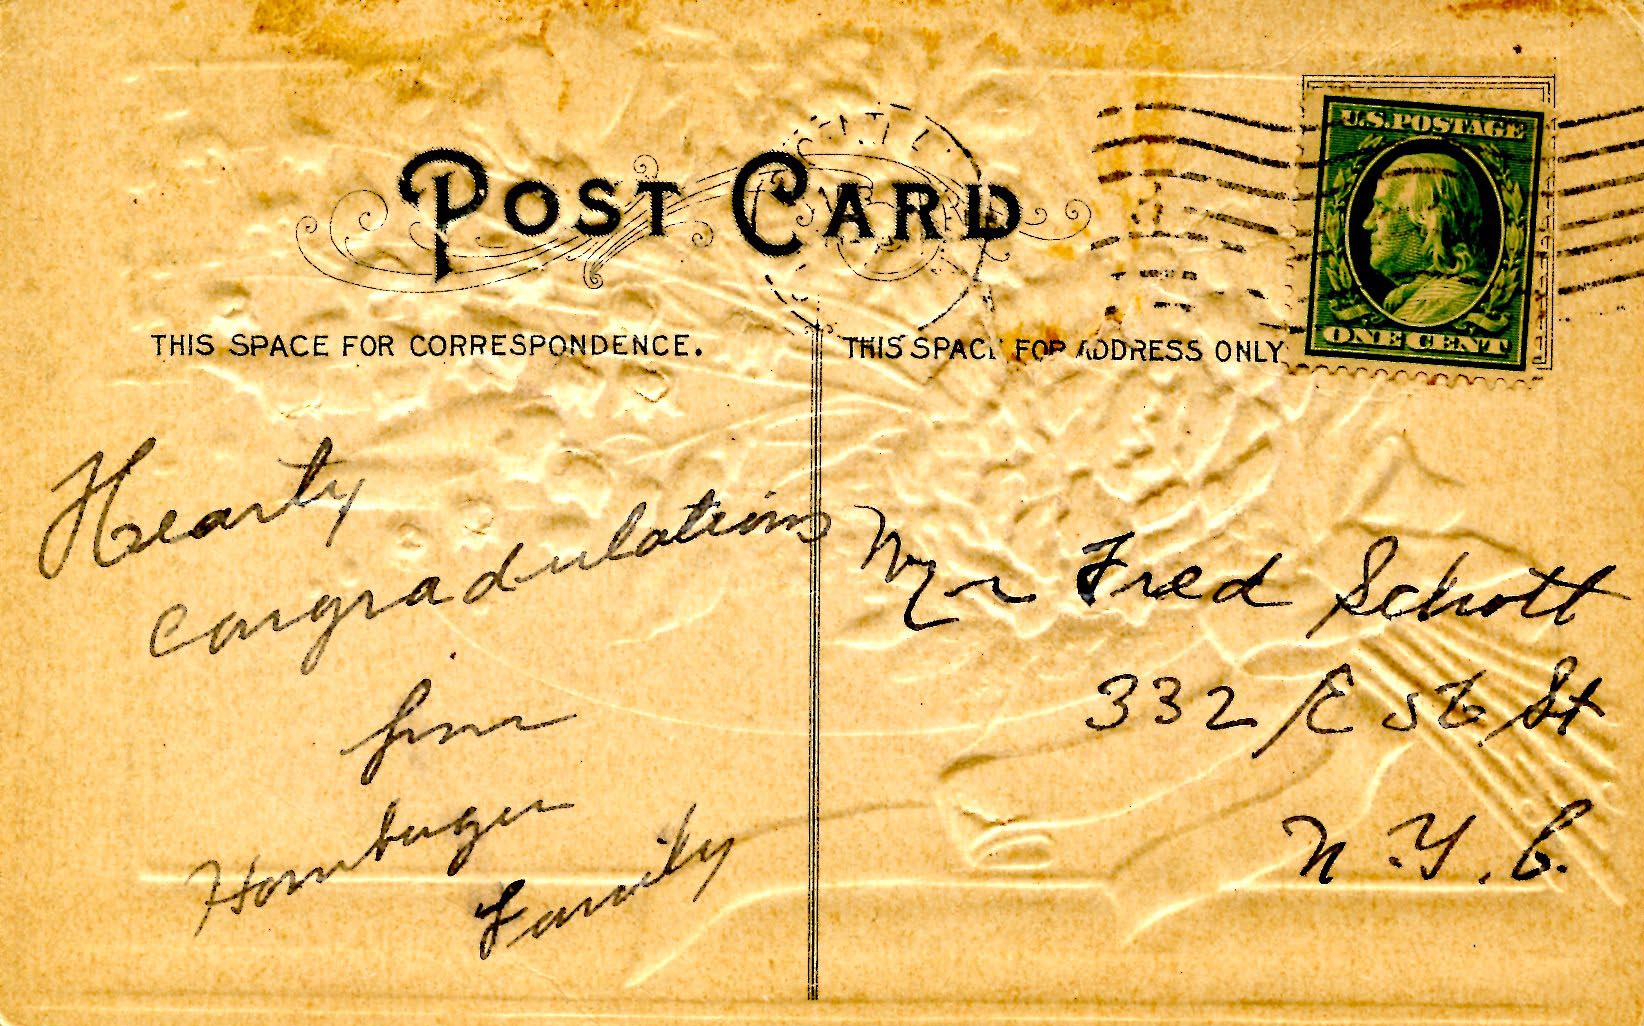 POST CARD
U.S. POSTAGE
ONE CENT
THIS SPACE FOR CORRESPONDENCE.
THIS SPACE FOR ADDRESS ONLY
Hearty
congradulations
from
Hornburger
Family
Mr Fred Schott
332 E 56 St
N.Y.C.